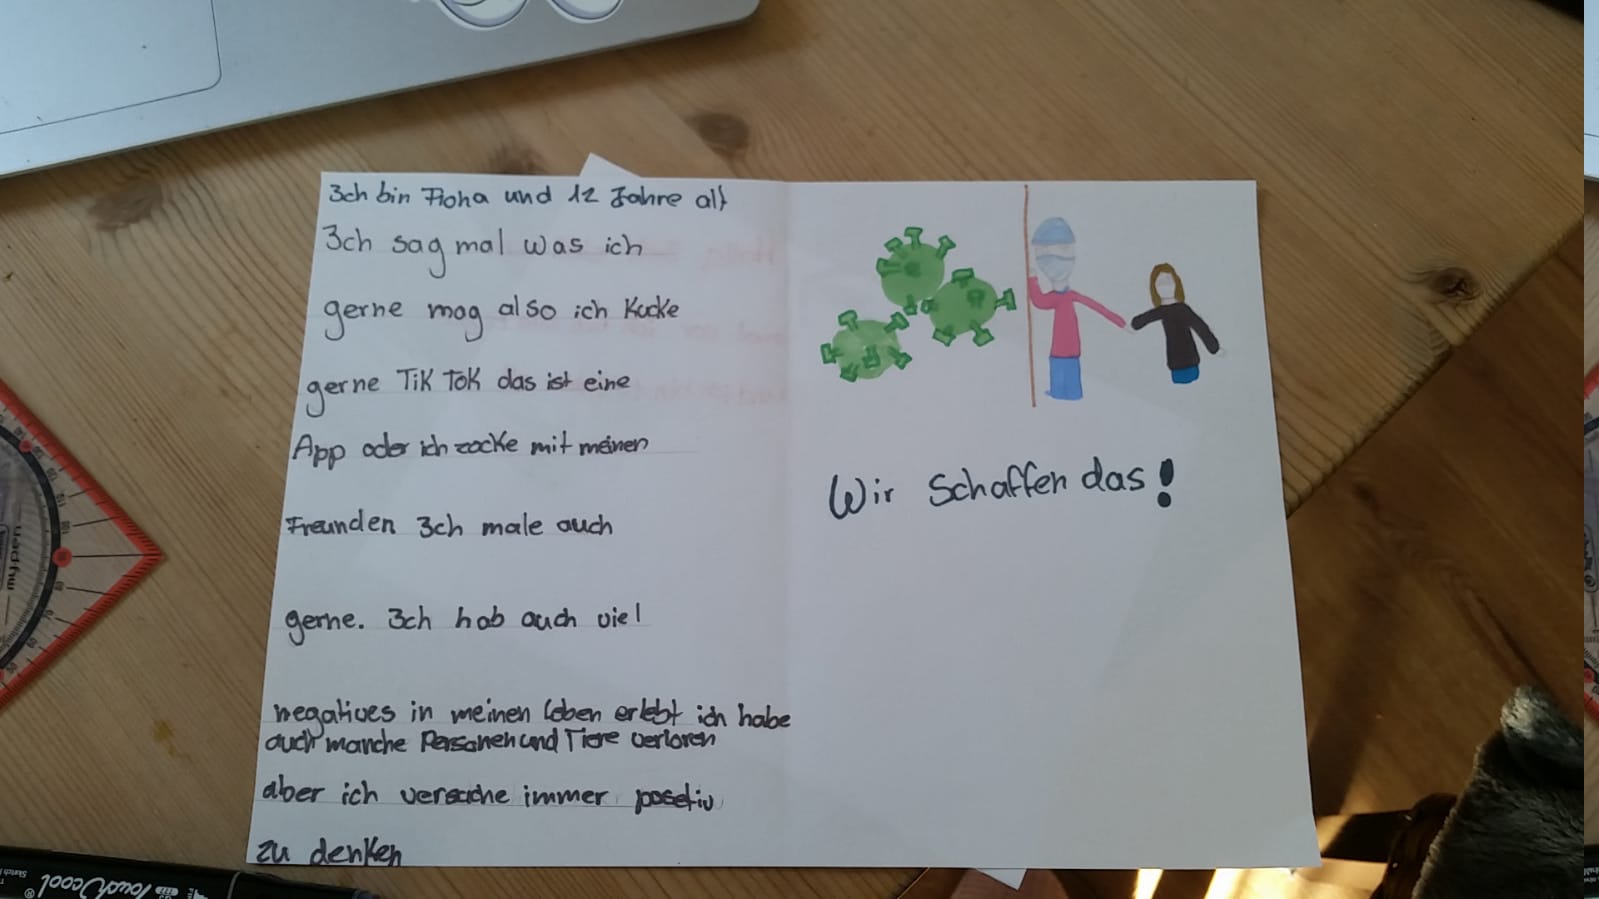 Ich bin Fioha und 12 Jahre alt
Ich sag mal was ich
gerne mag also ich Kucke
gerne TiK ToK das ist eine
App oder ich zocke mit meinen
Freunden Ich male auch
gerne. Ich hab auch viel
negatives in meinen Leben erlebt ich habe
auch manche Personen und Tiere verloren
aber ich versuche immer posetiv
zu denken
Wir Schaffen das!
Touch cool